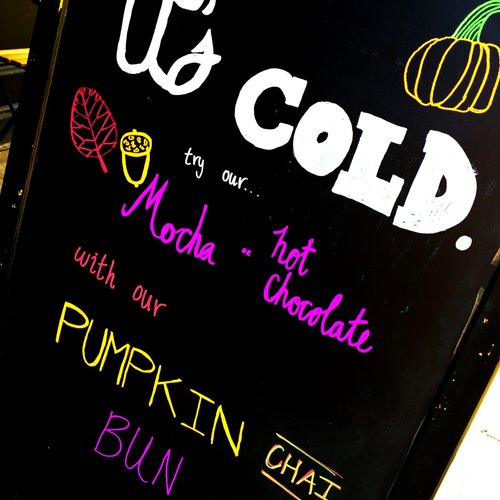 It's COLD.
try our...
Mocha .. hot chocolate
with our
PUMPKIN CHAI
BUN